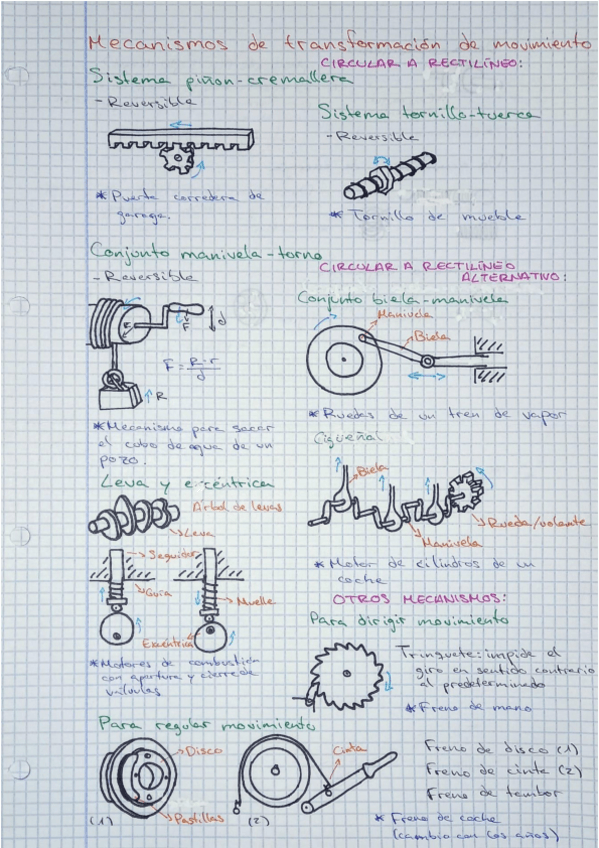 Mecanismos de transformación de movimiento
CIRCULAR A RECTILÍNEO:
Sistema piñon-cremallera
- Reversible
* Puerta corredera de
garage.
Sistema tornillo-tuerca
- Reversible
* Tornillo de mueble
Conjunto manivela-torno
- Reversible
F
d
F = R·r
d
R
* Mecanismo para sacar
el cubo de agua de un
pozo.
CIRCULAR A RECTILÍNEO
ALTERNATIVO:
Conjunto biela-manivela
Manivela
Biela
* Ruedas de un tren de vapor
Cigüeñal
Biela
Rueda/volante
Manivela
* Motor de cilindros de un
coche
Leva y excéntrica
Arbol de levas
Leva
Seguidor
Guía
Muelle
Excéntrica
* Motores de combustión
con apertura y cierre de
válvulas
OTROS MECANISMOS:
Para dirigir movimiento
Trinquete: impide el
giro en sentido contrario
al predeterminado
* Freno de mano
Para regular movimiento
Disco
Pastillas
(1)
Cinta
(2)
Freno de disco (1)
Freno de cinta (2)
Freno de tambor
* Freno de coche
(cambio con los años)